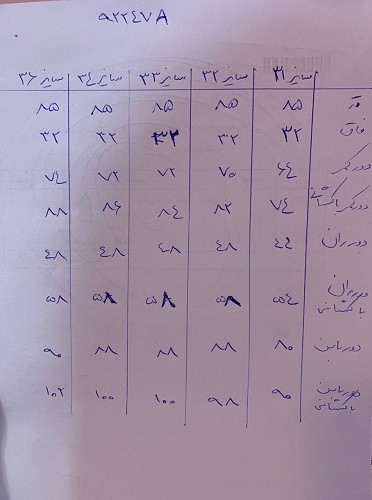 ۹۲۲۴۷۸
سایز ۳۱ سایز ۳۲ سایز ۳۳ سایز ۳۴ سایز ۳۶
قد ۸۵ ۸۵ ۸۵ ۸۵ ۸۵
فاق ۳۲ ۳۲ ۳۲ ۳۲ ۳۲
دور کمر ۶۴ ۷۰ ۷۲ ۷۲ ۷۴
دور کمر با کشسانی ۷۴ ۸۲ ۸۴ ۸۶ ۸۸
دور ران ۴۴ ۴۸ ۴۸ ۴۸ ۴۸
دور ران ۵۴ ۵۸ ۵۸ ۵۸ ۵۸
با کشسانی
دور باسن ۸۰ ۸۸ ۸۸ ۸۸ ۹۰
دور باسن ۹۰ ۹۸ ۱۰۰ ۱۰۰ ۱۰۲
با کشسانی